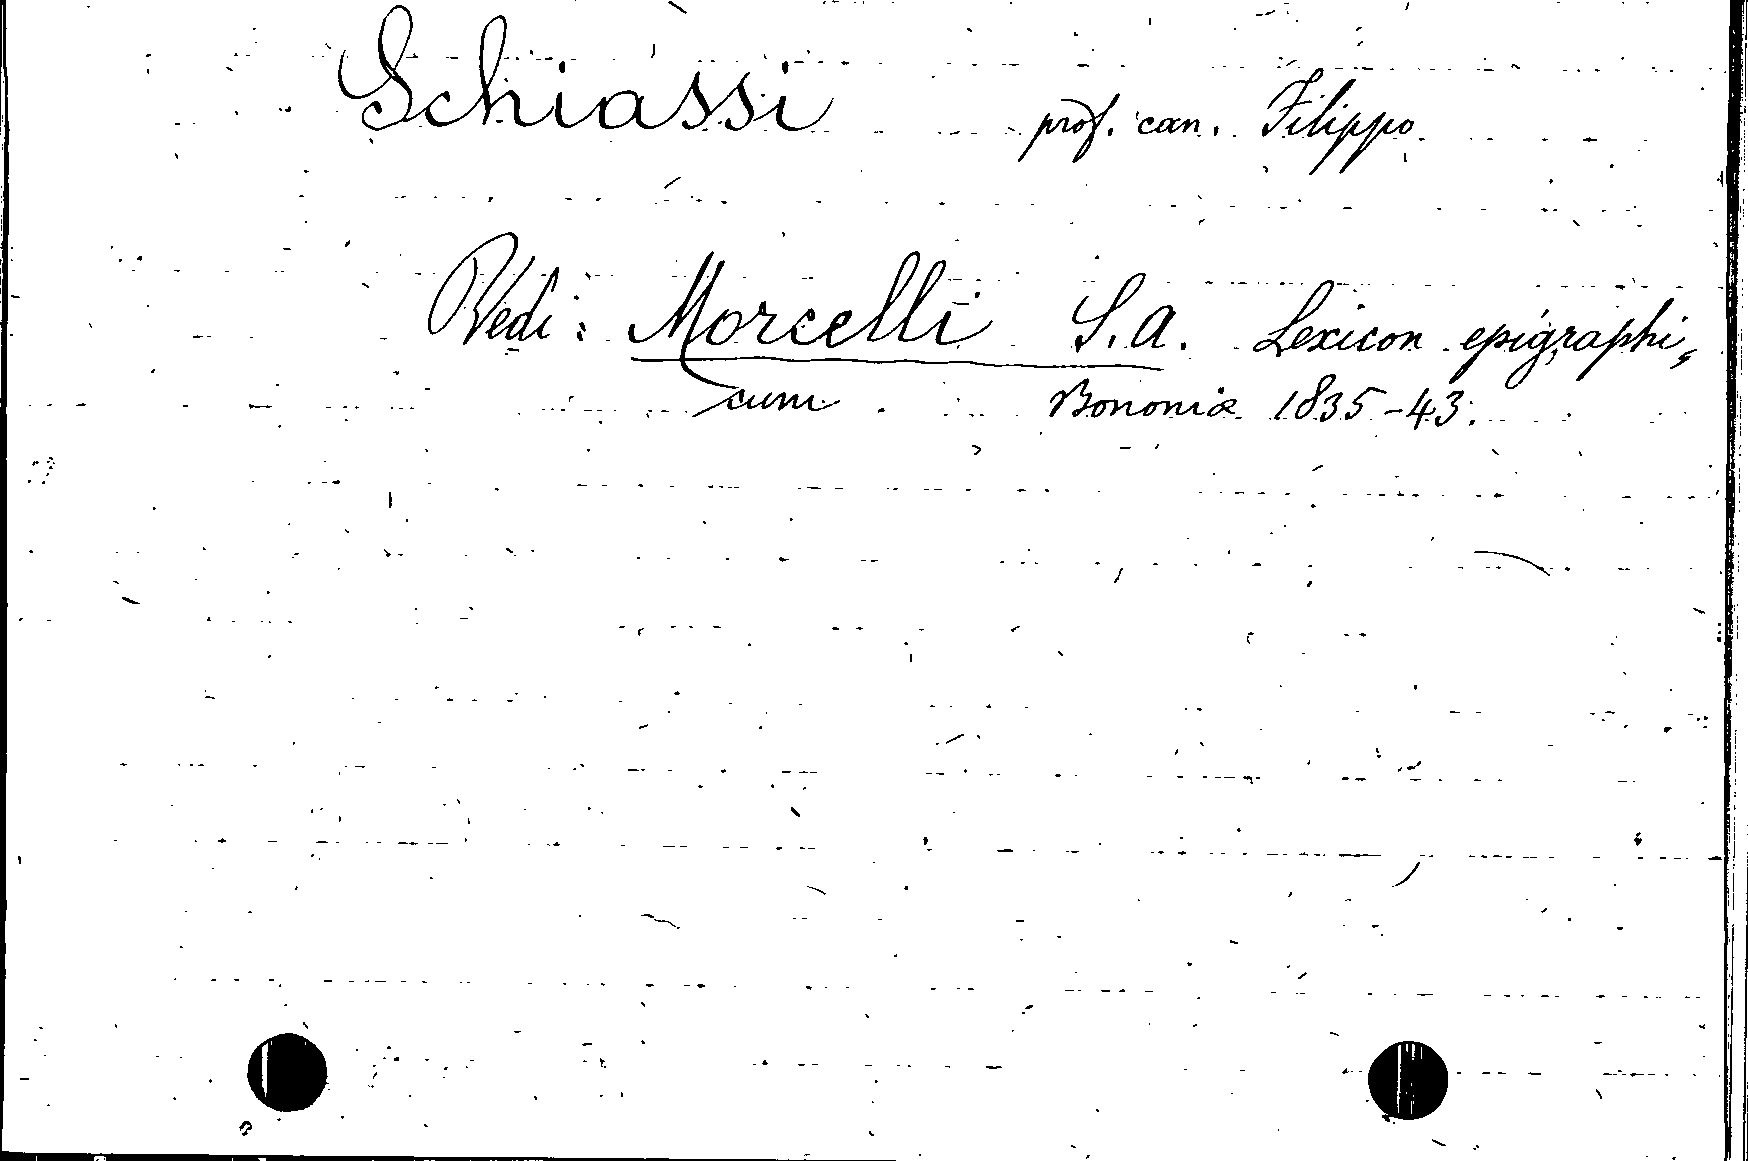 Schiassi prof. can. Filippo
Vedi: Morcelli S. A. Lexicon epigraphi„
cum Bononiæ 1835-43.